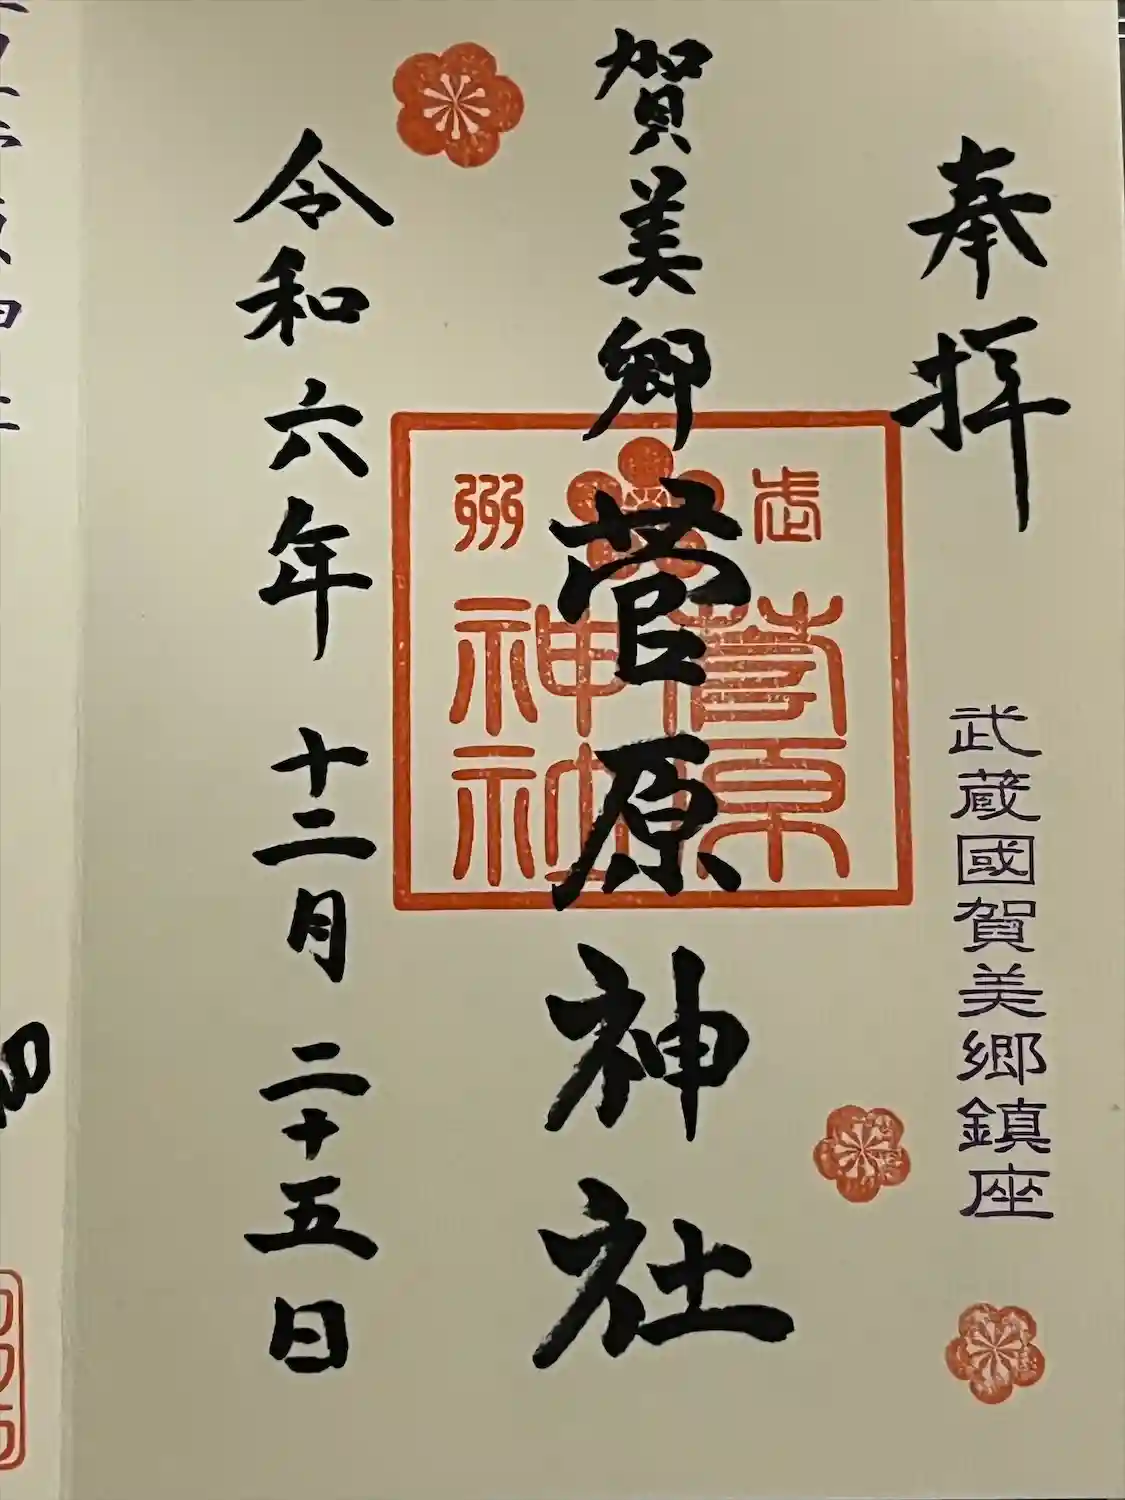 奉拝
武蔵國賀美郷鎮座
賀美郷
菅原神社
武州
菅原
神社
令和六年 十二月 二十五日